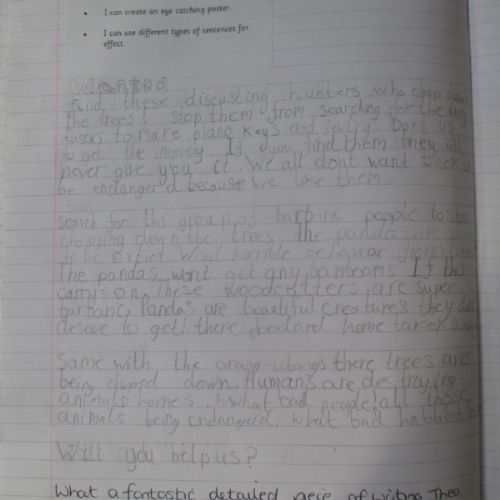 I can create an eye catching poster.
I can use different types of sentences for
effect.
Wanted
find these discusting hunters who chop down
the trees! Stop them from searching for the
tuscs to make piano keys and Dont try
to get the money. If you find them they will
never give you it. We all dont want them
be endangerd because we like them
search for this group of barbaric people to stop
chopping down the trees, the pandas are going
to be extict What horrible behavior from
The pandas wont get any bamboons If this
carrys on. These woodcutters are super
barbaric, Pandas are beautiful creatures they dont
deseve to get there food and home taken away
Same with the orang-utangs there trees are
being chped down. Humans are destraying
animals homes. What bad people all those
animals being endangerd. What bad
Will you help us?
What a fantastic detailed piece of writing Theo